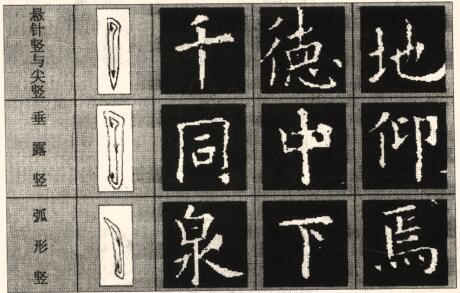 悬针竖与尖竖 千 德 地
垂露竖 同 中 仰
弧形竖 泉 下 焉